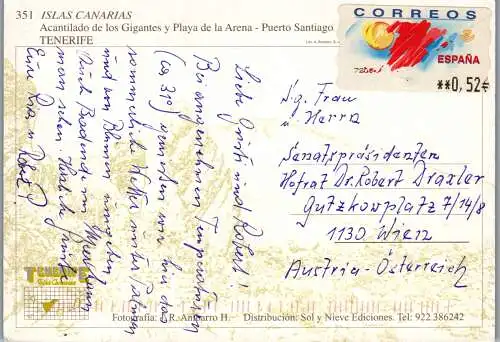 351 ISLAS CANARIAS
Acantilado de los Gigantes y Playa de la Arena - Puerto Santiago
TENERIFE
CORREOS
ESPAÑA
**0,52€
Liebe und Robert!
Bei angenehmen Temperaturen
(ca 30°) genießen wir hier das
sommerliche Wetter unter Palmen
und an Blumen
man schon
Eure und
S.g. Frau
u. Herrn
Senatspräsidenten
Hofrat Dr. Robert Draxler
Gutzkowplatz 7/14/8
1130 Wien
Austria - Österreich
TENERIFE
Fotografía: J.R. Antbarro H. Distribución: Sol y Nieve Ediciones. Tel: 922 386242